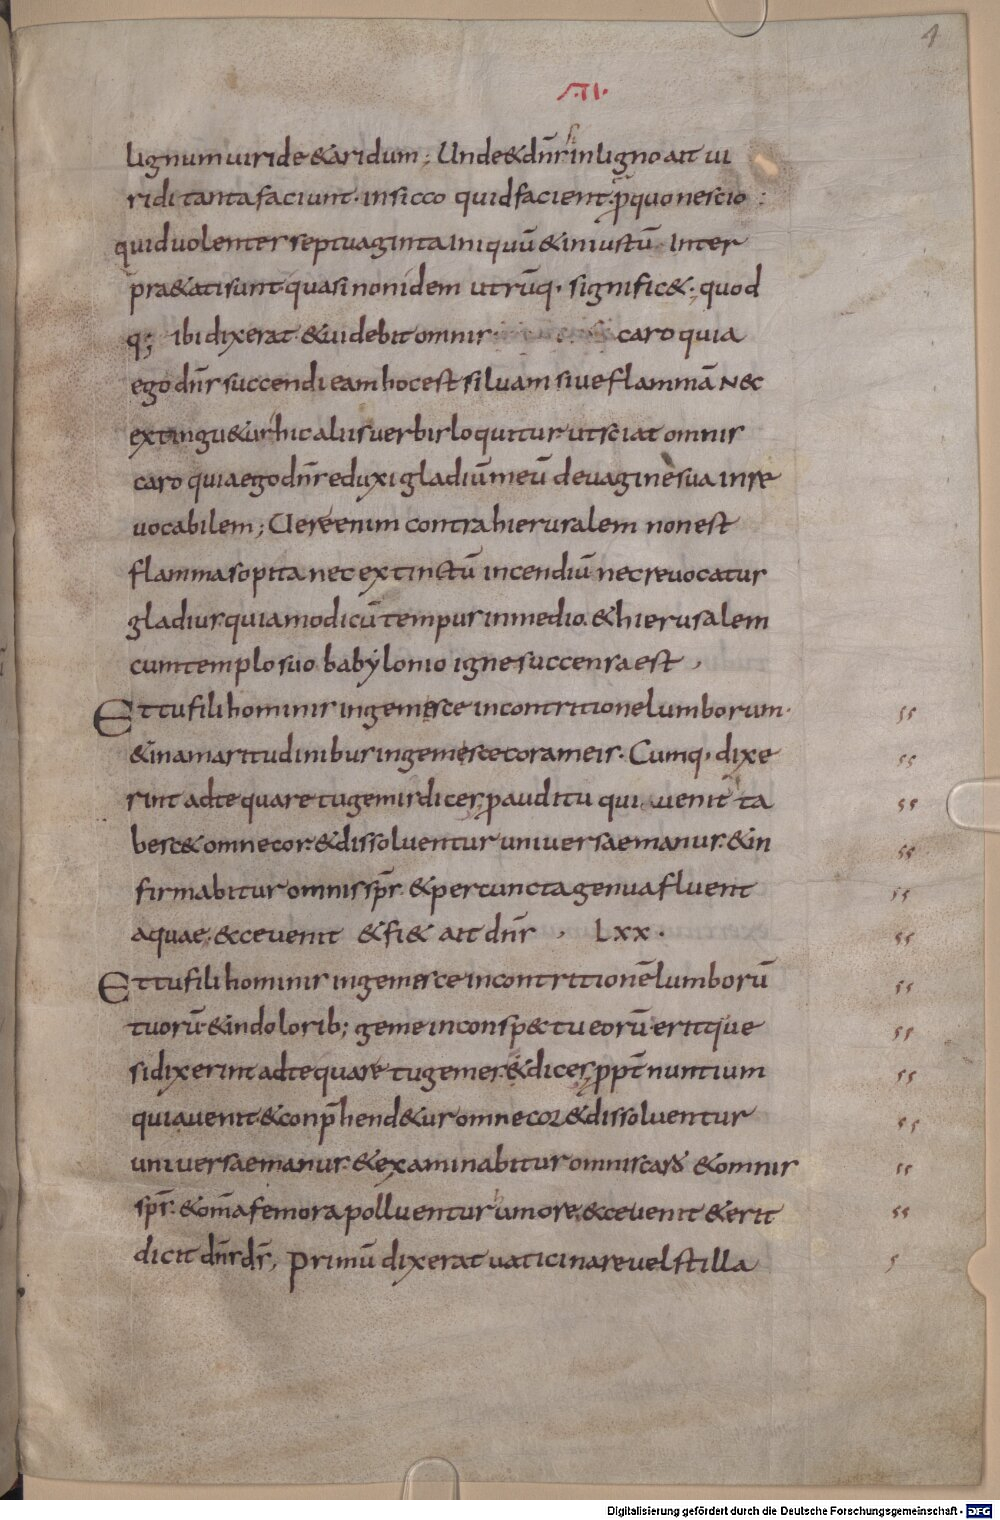 1
·VI·
lignum uiride & aridum; Unde & dn̄s in ligno ait ui
ridi tanta faciunt· in sicco quid facient· p̄ quo nescio
quid uolenter septuaginta iniquū & iniustū· Inter
pra&ati sunt quasi non idem utrūq· signific&; quod
q; ibi dixerat & uidebit omnis caro quia
ego dn̄s succendi eam hoc est siluam siue flammā nec
extingu&ur hic aliis uerbis loquitur ut sciat omnis
caro quia ego dn̄s eduxi gladiū meū de uagine sua inre
uocabilem; Uere enim contra hierusalem non est
flamma sopita nec extinctū incendiū nec reuocatur
gladius quia modicū tempus in medio & hierusalem
cum templo suo babylonio igne succensa est
Et tu fili hominis ingemesce in contritione lumborum·
& in amaritudinibus ingemesce coram eis· Cumq· dixe
rint ad te quare tu gemis dices p auditu quia uenit ta
besc& omne cor & dissoluentur uniuersae manus & in
firmabitur omnis sp̄s & per cuncta genua fluent
aquae; ecce uenit & fi& ait dn̄s · LXX·
Et tu fili hominis ingemesce in contritionē lumborū
tuorū & in dolorib; geme in consp&tu eorū erit que
si dixerint ad te quare tu gemes & dices ppt̄ nuntium
quia uenit & conp̄hend&ur omne cor & dissoluentur
uniuersae manus & examinabitur omnis caro & omnis
sp̄s & om̄a femora polluentur umore, ecce uenit & erit
dicit dn̄s ds̄, Primū dixerat uaticinare uel stilla
Digitalisierung gefördert durch die Deutsche Forschungsgemeinschaft - DFG